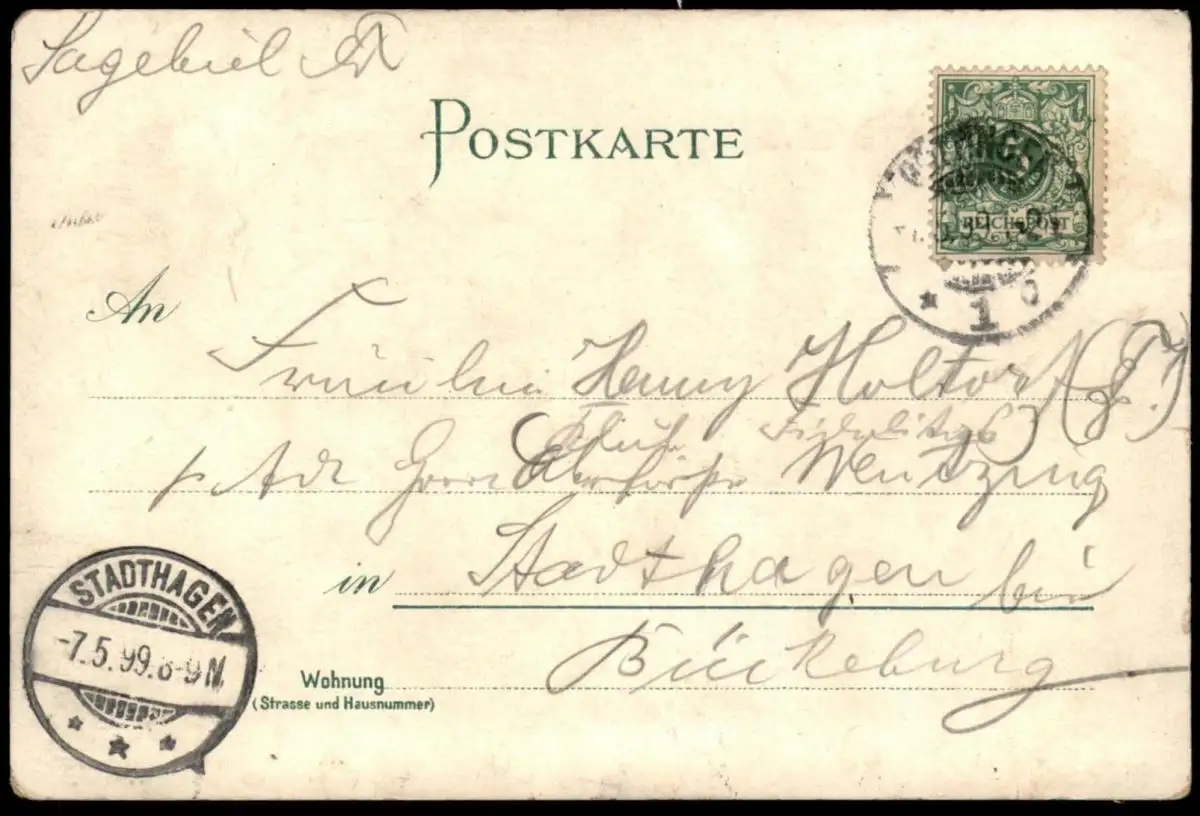 Sagebiel
POSTKARTE
5
REICHSPOST
1 c
An
Fräulein Hanny Holtorf
(Club Fidelitas)
p Adr Herrn Oberförster Wentzing
in Stadthagen bei
Bückeburg
STADTHAGEN
-7.5.99.8-9N.
Wohnung
(Strasse und Hausnummer)